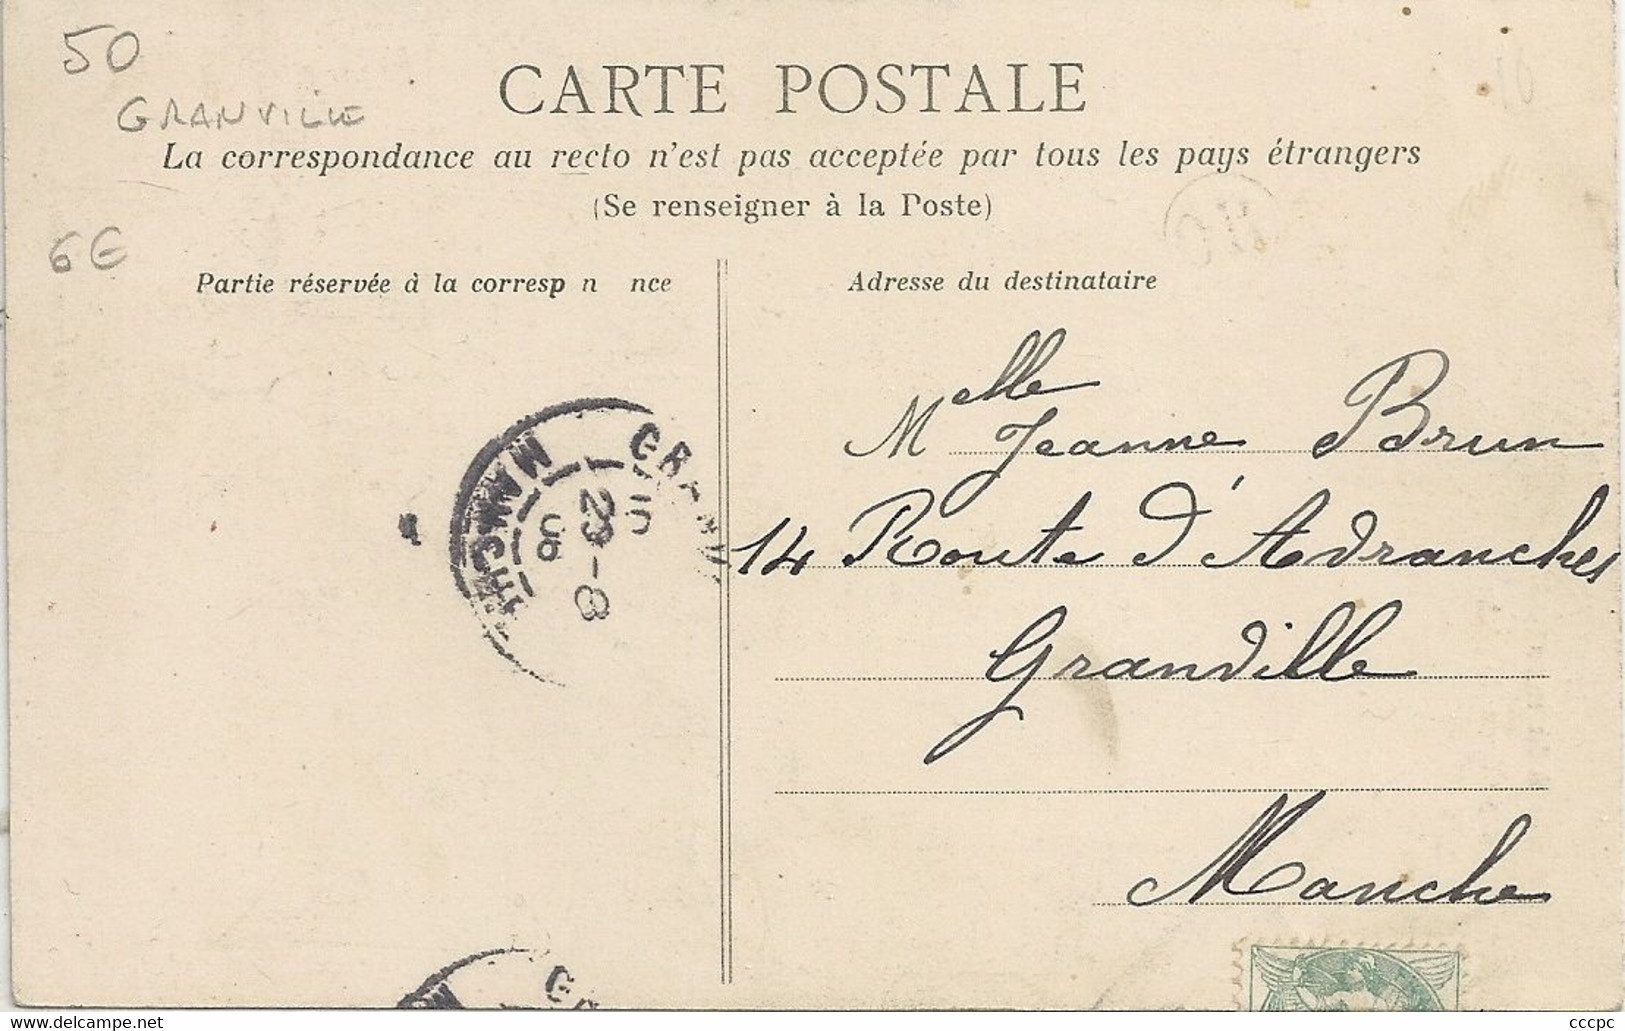 50
GRANVILLE
CARTE POSTALE
La correspondance au recto n'est pas acceptée par tous les pays étrangers
(Se renseigner à la Poste)
6€
Partie réservée à la corresp n nce
Adresse du destinataire
Melle Jeanne Brun
14 Route d'Avranches
Granville
Manche
GRANV
29-8
06
MANCHE
cccpc